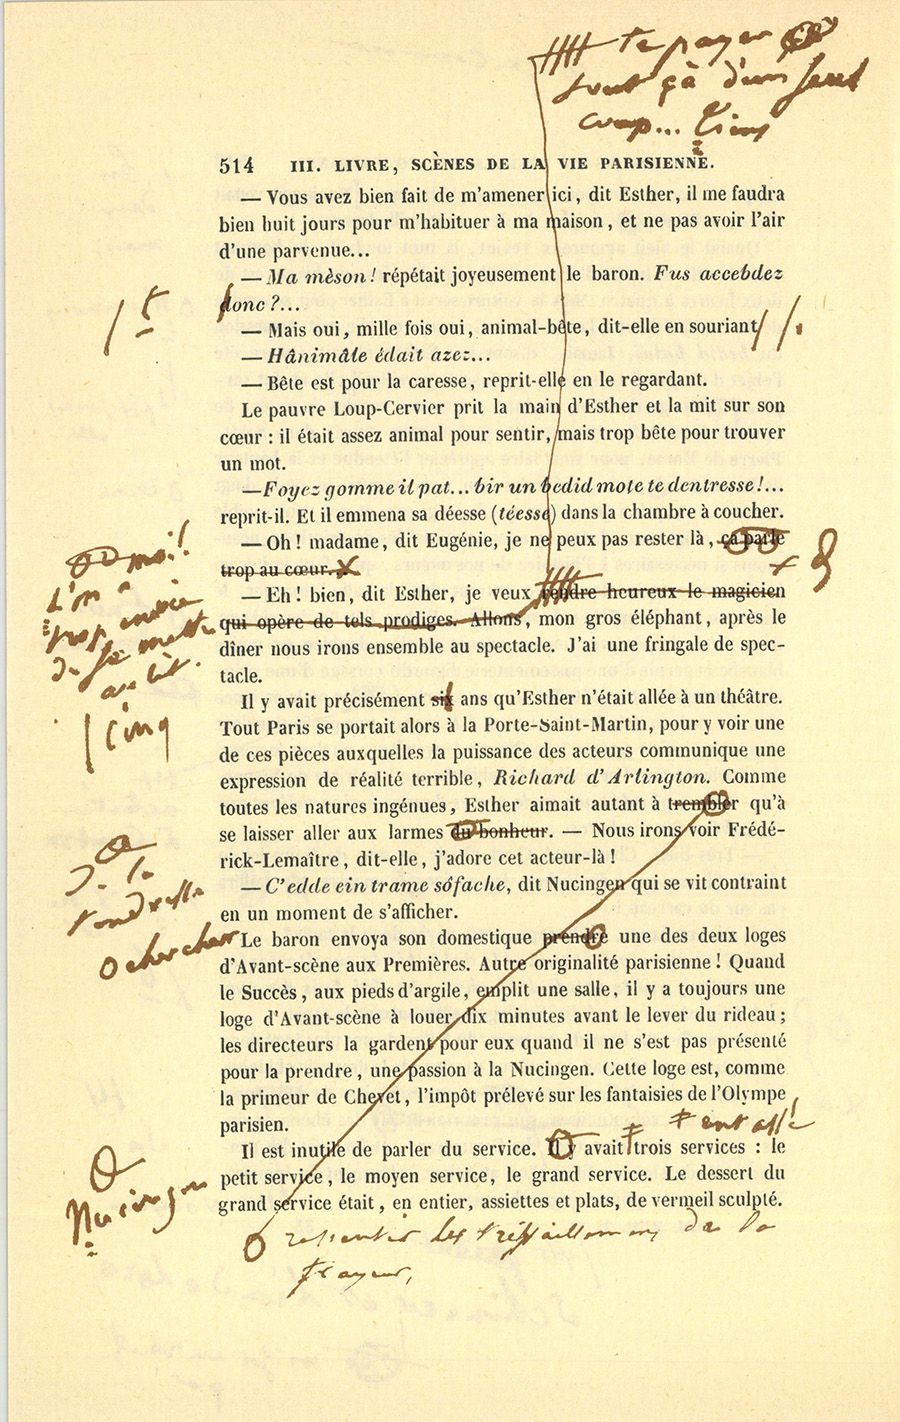 te payer
tout çà d'un seul
coup... Tiens
514 III. LIVRE, SCÈNES DE LA VIE PARISIENNE.
— Vous avez bien fait de m'amener ici, dit Esther, il me faudra
bien huit jours pour m'habituer à ma maison, et ne pas avoir l'air
d'une parvenue...
— Ma mèson! répétait joyeusement le baron. Fus accebdez
donc?...
— Mais oui, mille fois oui, animal-bête, dit-elle en souriant
— Hânimâle édait azez...
— Bête est pour la caresse, reprit-elle en le regardant.
Le pauvre Loup-Cervier prit la main d'Esther et la mit sur son
cœur : il était assez animal pour sentir, mais trop bête pour trouver
un mot.
— Foyez gomme il pat... bir un bedid mote te dentresse!...
reprit-il. Et il emmena sa déesse (téesse) dans la chambre à coucher.
— Oh! madame, dit Eugénie, je ne peux pas rester là, ça parle
trop au cœur.
moi!
L'on a
trop envie
de se mettre
au lit.
— Eh! bien, dit Esther, je veux rendre heureux le magicien
qui opère de tels prodiges. Allons, mon gros éléphant, après le
dîner nous irons ensemble au spectacle. J'ai une fringale de spec-
tacle.
Il y avait précisément six ans qu'Esther n'était allée à un théâtre.
cinq
Tout Paris se portait alors à la Porte-Saint-Martin, pour y voir une
de ces pièces auxquelles la puissance des acteurs communique une
expression de réalité terrible, Richard d'Arlington. Comme
toutes les natures ingénues, Esther aimait autant à trembler qu'à
se laisser aller aux larmes du bonheur. — Nous irons voir Frédé-
rick-Lemaître, dit-elle, j'adore cet acteur-là!
de la
tendresse
— C'edde ein trame sôfache, dit Nucingen qui se vit contraint
en un moment de s'afficher.
chercher
Le baron envoya son domestique prendre une des deux loges
d'Avant-scène aux Premières. Autre originalité parisienne! Quand
le Succès, aux pieds d'argile, emplit une salle, il y a toujours une
loge d'Avant-scène à louer dix minutes avant le lever du rideau;
les directeurs la gardent pour eux quand il ne s'est pas présenté
pour la prendre, une passion à la Nucingen. Cette loge est, comme
la primeur de Chevet, l'impôt prélevé sur les fantaisies de l'Olympe
parisien.
Il est inutile de parler du service. Il y avait trois services : le
petit service, le moyen service, le grand service. Le dessert du
grand service était, en entier, assiettes et plats, de vermeil sculpté.
Nucingen
ressentir les tressaillemens de la
frayeur,